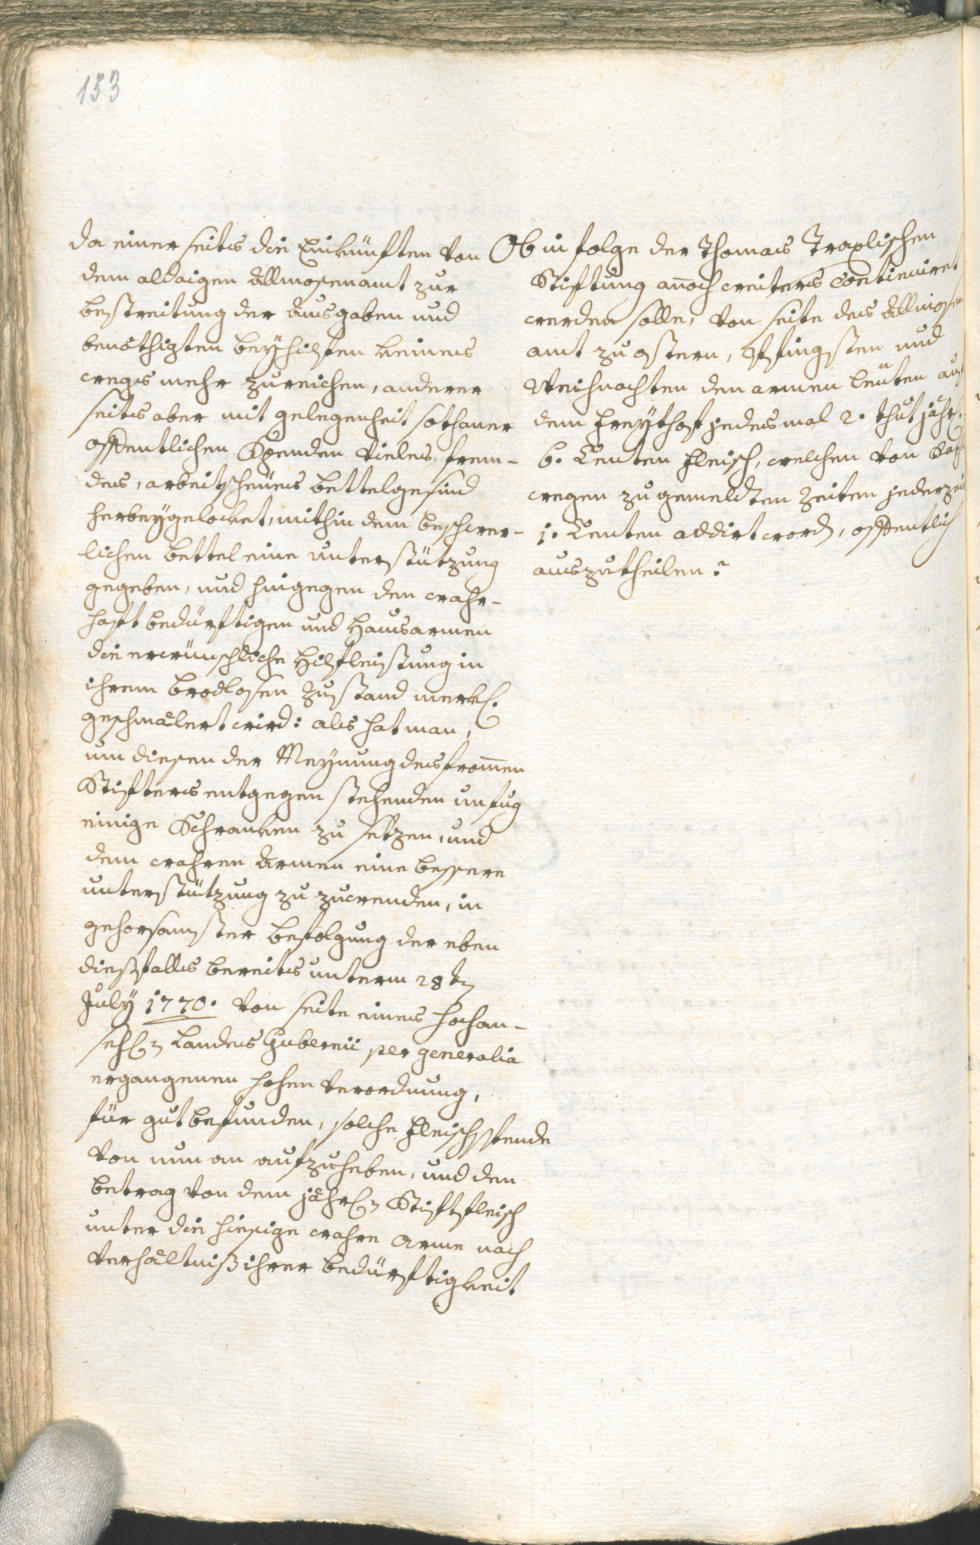 153
da einer seits die Einkünften von
dem aldaigen Allmosenamt zur
bestreitung der ausgaben und
benöthigten beyhilfen keines
weegs mehr zureichen, anderer
seits aber mit gelegenheit sothaner
offentlichen Spenden vieles, frem-
des, arbeitscheües bettelgesind
herbeygelocket, mithin dem beschwer-
lichen bettel eine unterstützung
gegeben, und hingegen den wahr-
haft bedürftigen und Hausarmen
die erwünschliche Hilfleistung in
ihrem brodlosen Zustand merkl.
geschmälert wird: als hat man,
um diesen der Meynung des from̅en
Stifters entgegen stehenden unfug
einige Schranken zu setzen, und
dem wahren Armen eine bessere
unterstützung zu zuwenden, in
gehorsamster befolgung der eben
diesfalls bereits unterm 28t
July 1770. von seite eines hochan-
sehl. Landes Gubernii per generalia
ergangenen hohen verordnung,
für gut befunden, solche Fleischspende
von nun an aufzuheben, und den
betrag von dem jährl. Stiftfleisch
unter die hiesige wahre Arme nach
verhältniß ihrer bedürftigkeit
Ob in folge der Thomas Traxlischen
Stiftung an̅och weiters Continuiret
werden solle, von seite des Allmosen
amt zu ostern, Pfingsten und
Weihnachten den armen leüten auf
dem Freythof jedesmal 2. thut jährl.
6. Centen Fleisch, welchen von
wegen zu gemeldten Zeiten jederzeit
1. Centen addirt word, offentlich
auszutheilen?